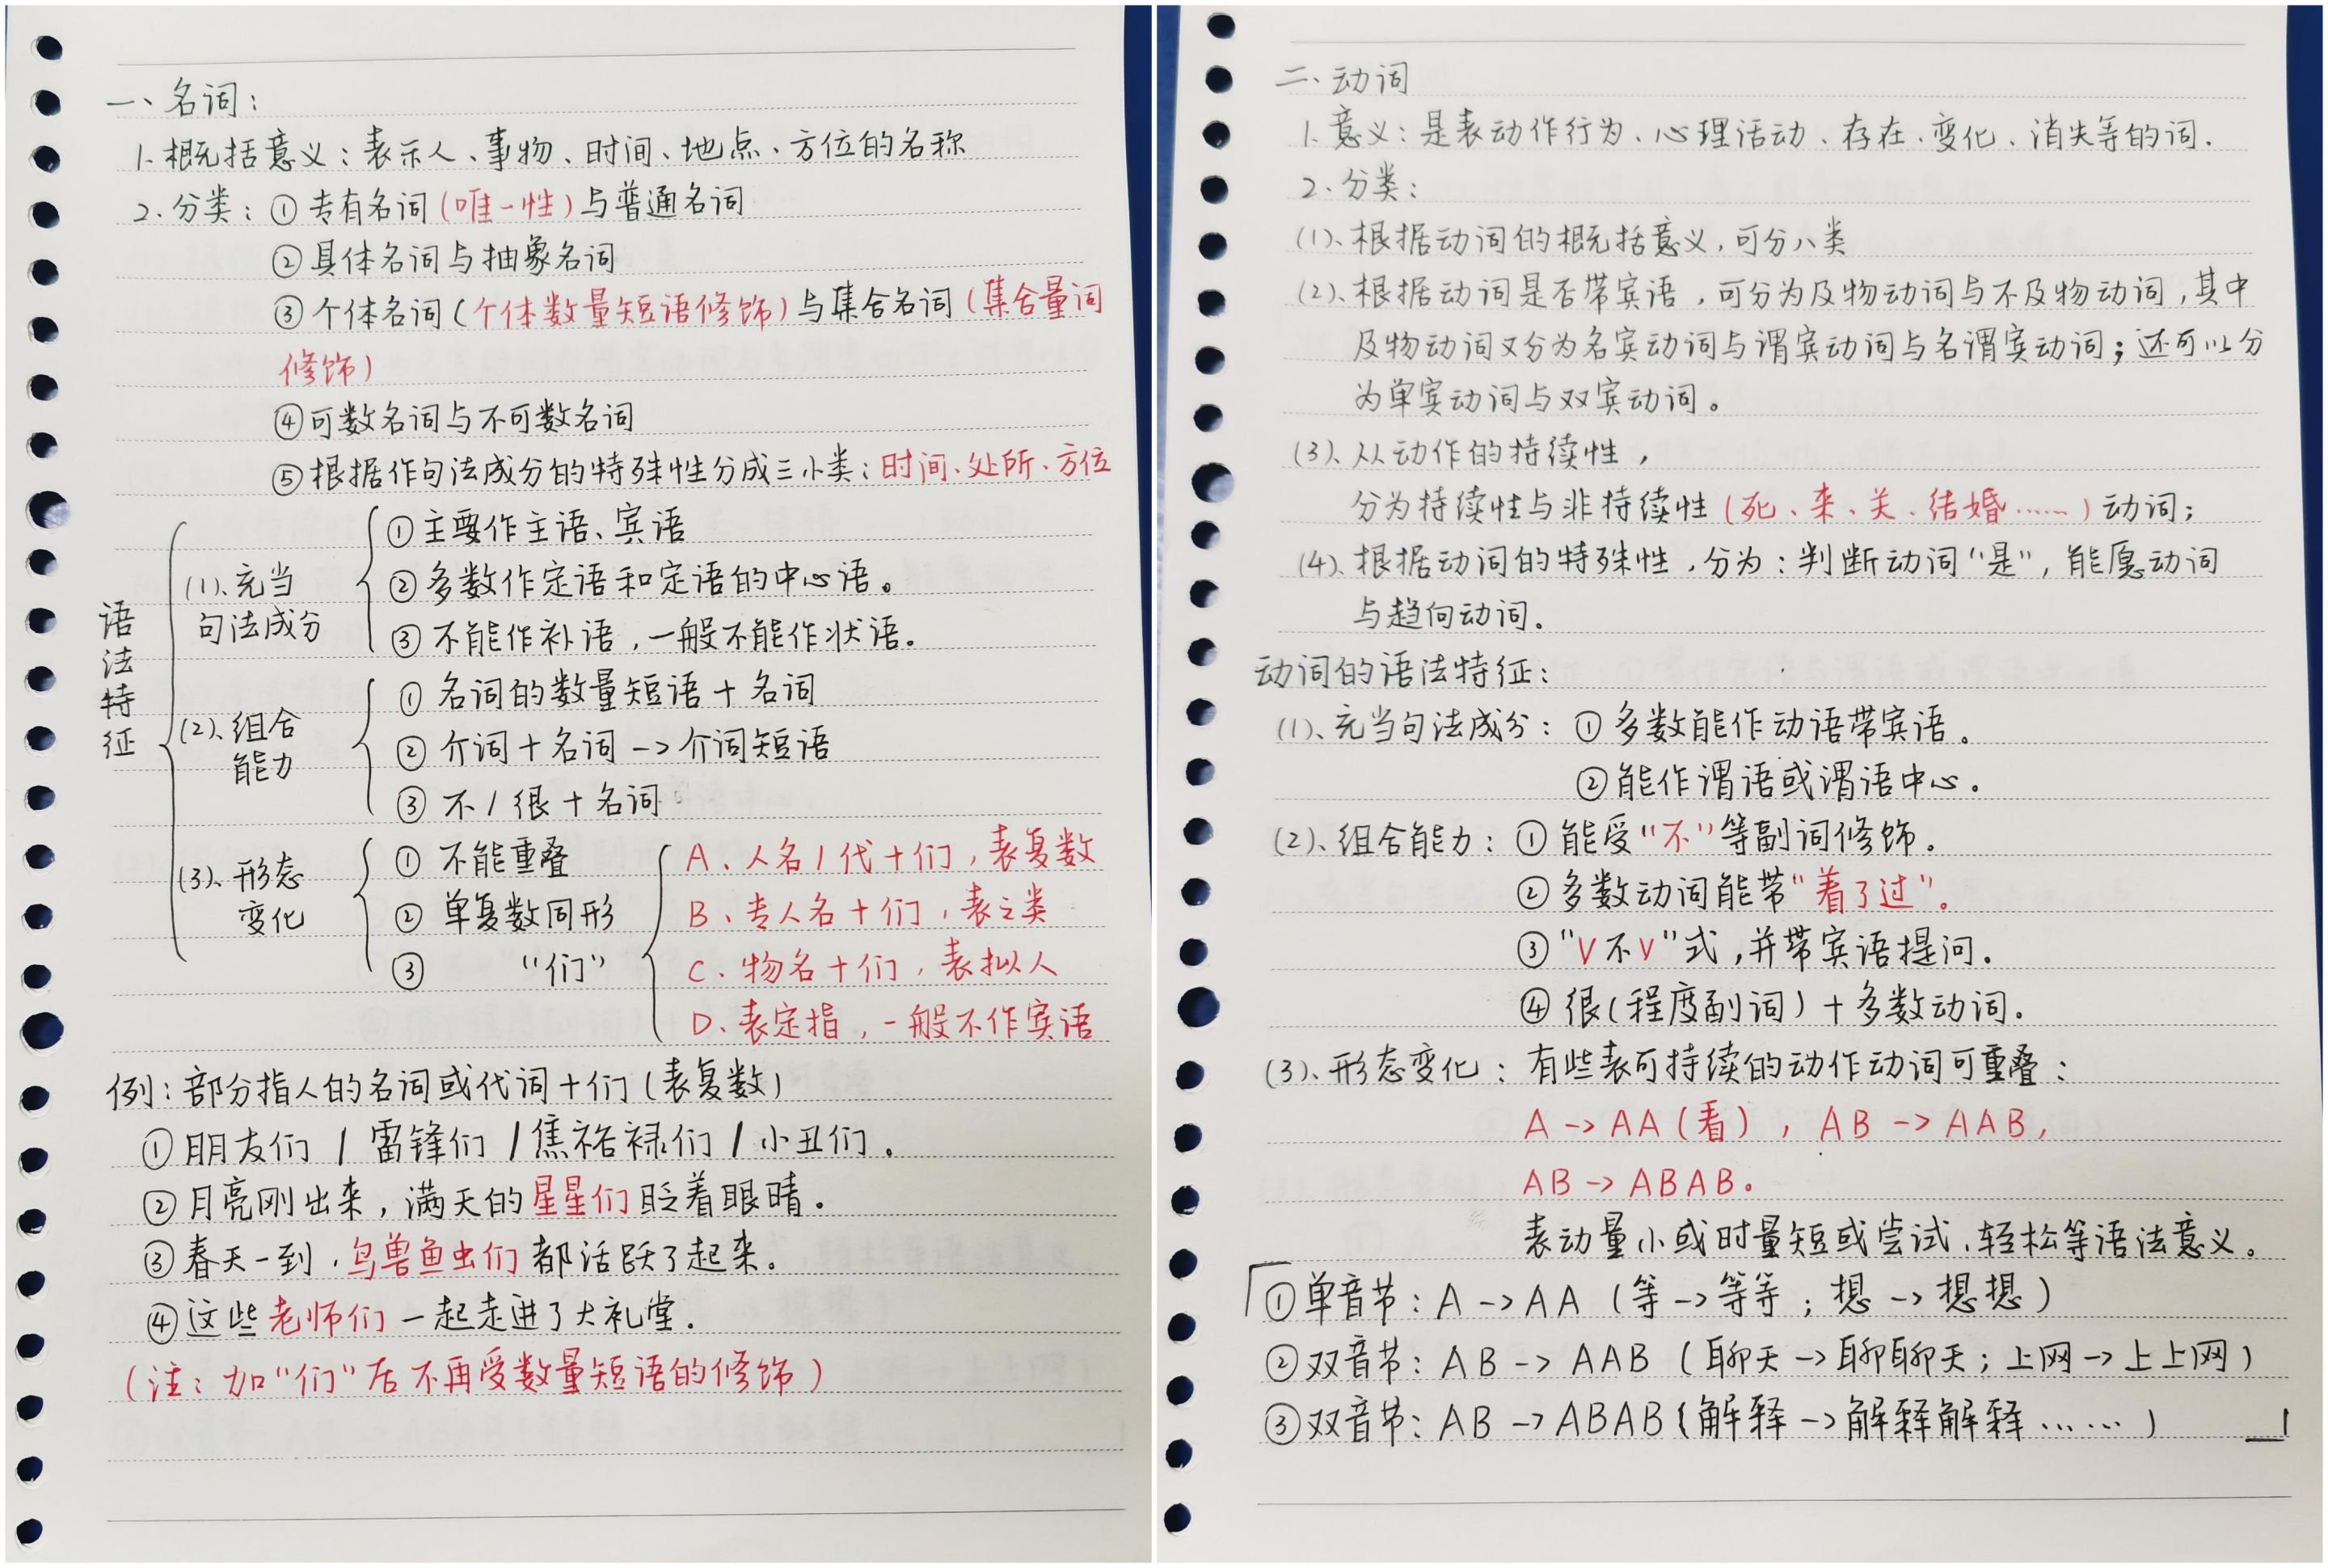 一、名词：
1.概括意义：表示人、事物、时间、地点、方位的名称
2.分类：①专有名词（唯一性）与普通名词
②具体名词与抽象名词
③个体名词（个体数量短语修饰）与集合名词（集合量词
修饰）
④可数名词与不可数名词
⑤根据作句法成分的特殊性分成三小类：时间、处所、方位
语法特征
(1)、充当
句法成分
①主要作主语、宾语
②多数作定语和定语的中心语。
③不能作补语，一般不能作状语。
(2)、组合
能力
①名词的数量短语+名词
②介词+名词->介词短语
③不/很+名词
(3)、形态
变化
①不能重叠
②单复数同形
③ “们”
A、人名/代+们，表复数
B、专人名+们，表之类
C、物名+们，表拟人
D、表定指，一般不作宾语
例：部分指人的名词或代词+们（表复数）
①朋友们/雷锋们/焦裕禄们/小丑们。
②月亮刚出来，满天的星星们眨着眼睛。
③春天一到，鸟兽鱼虫们都活跃了起来。
④这些老师们一起走进了大礼堂.
（注：加“们”后不再受数量短语的修饰）
二、动词
1.意义：是表动作行为、心理活动、存在、变化、消失等的词.
2.分类：
(1)、根据动词的概括意义,可分八类
(2)、根据动词是否带宾语，可分为及物动词与不及物动词,其中
及物动词又分为名宾动词与谓宾动词与名谓宾动词；还可以分
为单宾动词与双宾动词。
(3)、从动作的持续性，
分为持续性与非持续性（死、来、关、结婚……）动词；
(4)、根据动词的特殊性，分为：判断动词“是”，能愿动词
与趋向动词.
动词的语法特征：
(1)、充当句法成分：①多数能作动语带宾语。
②能作谓语或谓语中心。
(2)、组合能力：①能受“不”等副词修饰.
②多数动词能带“着了过”。
③“V不V”式,并带宾语提问.
④很(程度副词)+多数动词.
(3)、形态变化：有些表可持续的动作动词可重叠：
A->AA（看），AB->AAB，
AB->ABAB。
表动量小或时量短或尝试、轻松等语法意义。
①单音节：A->AA（等->等等；想->想想）
②双音节：AB->AAB（聊天->聊聊天；上网->上上网）
③双音节：AB->ABAB（解释->解释解释……）